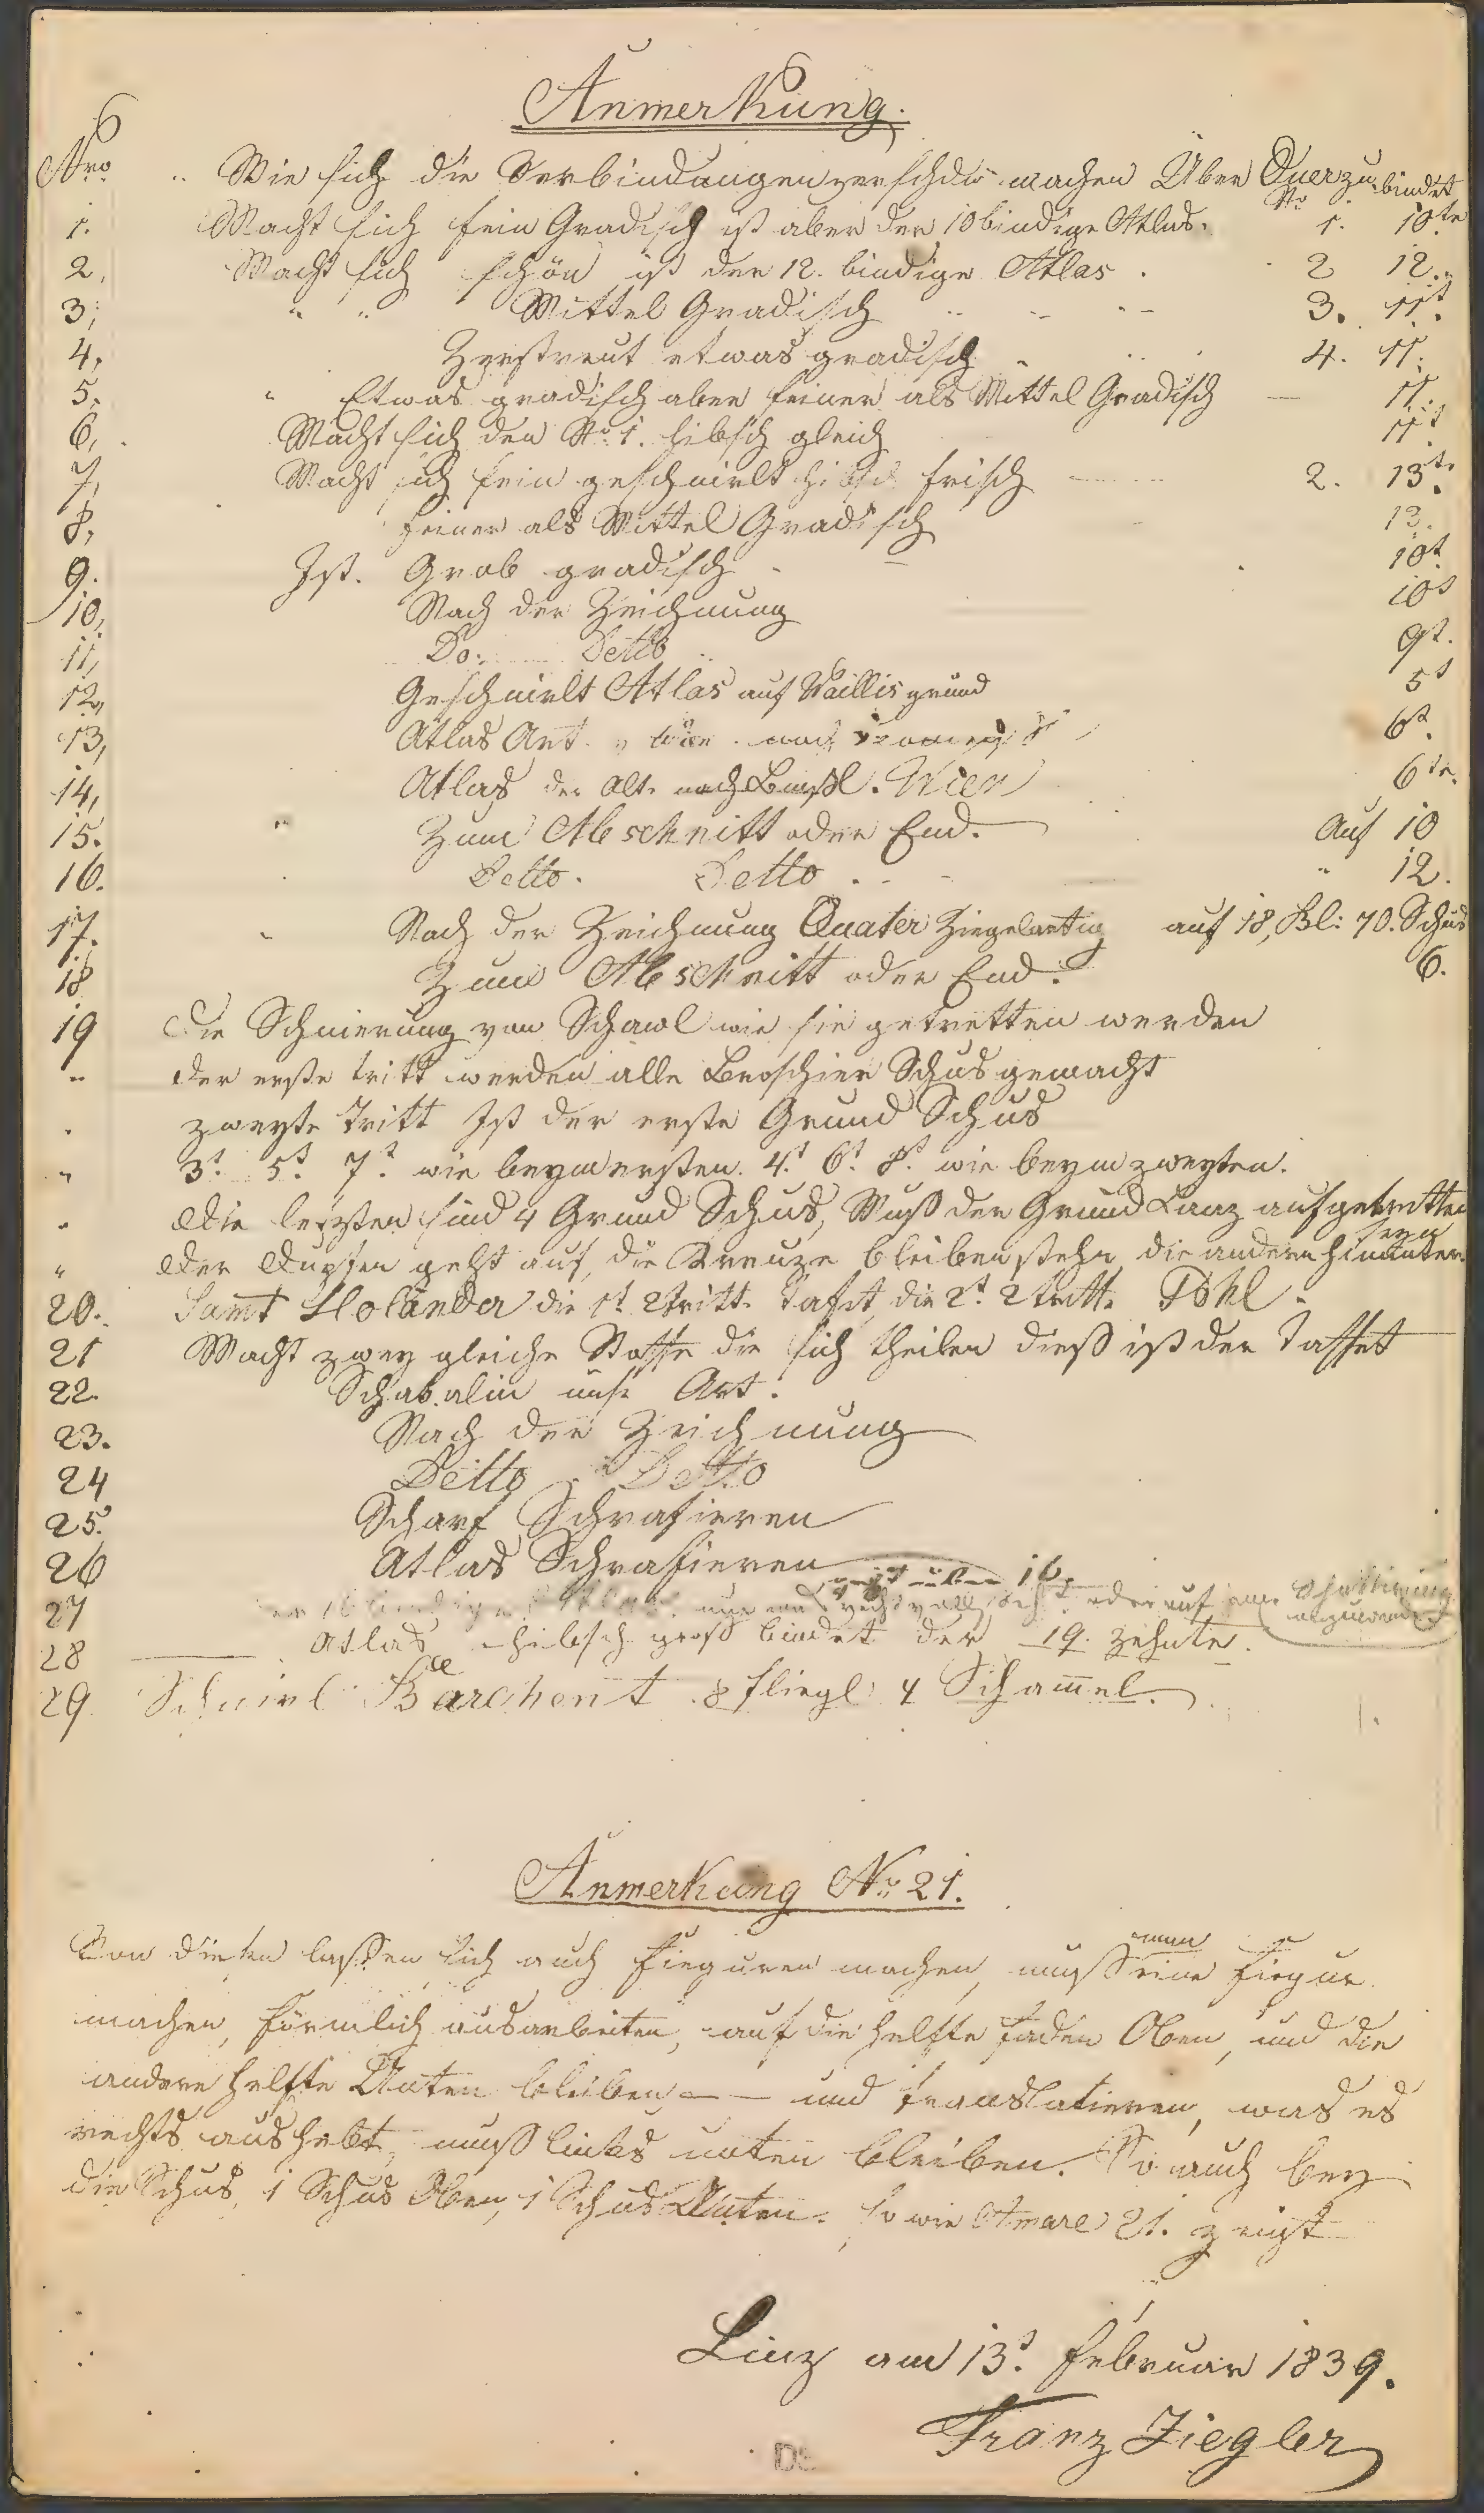 Anmerkung.
Nro. Wie sich die Verbindungen verschdn machen Über Quer zu bindet
No
1. Macht sich fein Gradisch ist aber der 10 bindige Atlas. 1. 10te
2. Macht sich schön ist der 12. bindige Atlas. 2 12.
3. " " Mittel Gradisch 3. 11t.
4. Zerstreut etwas gradisch 4. 11.
5. " Etwas gradisch aber feiner als Mittel Gradisch 11.
6. Macht sich den No 1. hibsch gleich 11t
7. Macht sich fein geschnirlt hibsch frisch 2. 13te
8. Feiner als Mittel Gradisch 13.
9. Ist. Grob gradisch 10t
10. Nach der Zeichnung 10t
11. Do. Detto 9t.
12. Geschnirlt Atlas auf Waillis grund 5t
13. Atlas Art. 6t.
14. Atlas der Alte nach Wien 6te.
15. " Zum Abschnitt oder End. Auf 10
16. Detto. Detto " 12.
17. " Nach der Zeichnung Quater Ziegelartig auf 18, Bl: 70. Schus
18 Zum Abschnitt oder End. 6.
19 Die Schnierung vom Schawl wie sie getretten werden
" der erste tritt werden alle Broschier Schus gemacht
zweyte tritt Ist der erste Grund Schus
" 3t. 5t. 7t. wie beym ersten. 4t. 6t. 8t. wie beym zweyten.
" Die letzten sind 4 Grund Schus, Muß der Grund Ganz aufgetretten seyn
" Der Dupfen geht auf, die Kreuze bleiben stehn, die andern hinunter.
20. Samt Holänder die 1t. 2 tritt. Tafet, die 2t. 2 tritt. Pohl.
21 Macht zwey gleiche Stoffe die sich theilen dieß ist der Taffet
22. Art.
23. Nach der Zeichnung
24 Detto Detto
25. Scharf Schrafieren
26 Atlas Schrafieren
27 oder auf
28 Atlas hibsch groß bindet der 19. zehnte.
29 Schnirl Barchent. 8 fliegl 4 Scham̄el.
Anmerkung No 21.
Von diesen lassen sich auch Fieguren machen, muß man eine Fiegur
machen, förmlich ausarbeiten, auf die helfte Faden Oben, und die
andere helfte Unten bleiben — — und translatieren, was es
rechts aushebt, muß links unten bleiben. So auch bey
die Schus, 1 Schus Oben, 1 Schus Unten. so wie 21. zeigt
Linz am 13t. Februar 1839.
Franz Ziegler